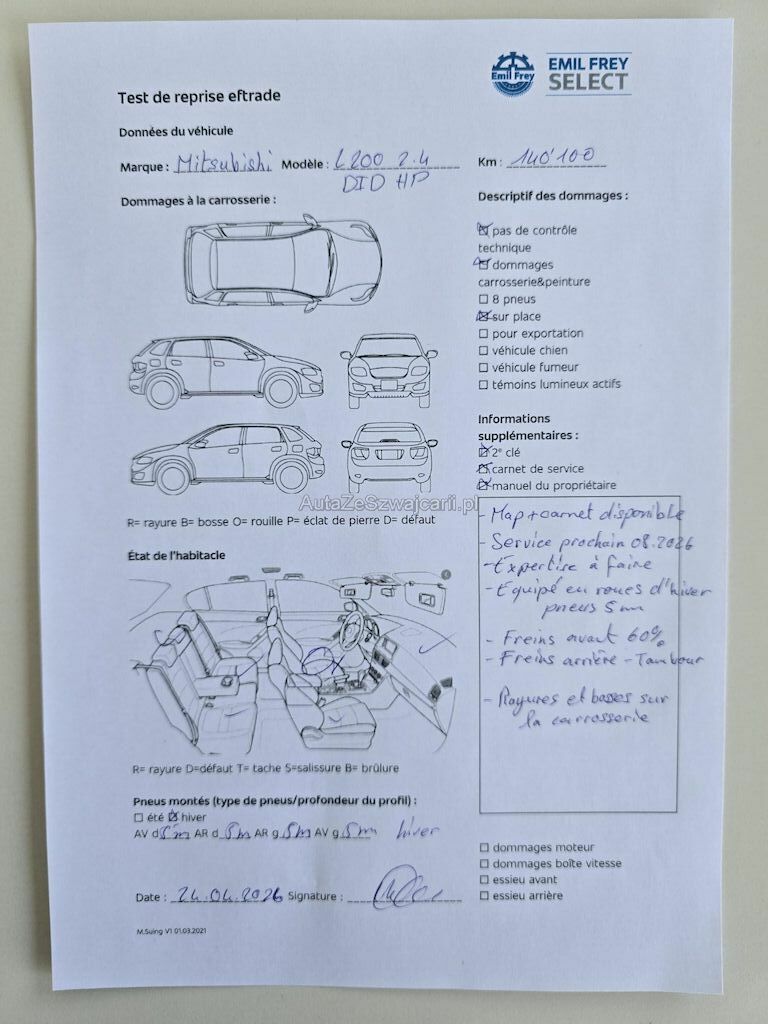 Emil Frey
EMIL FREY
SELECT
Test de reprise eftrade
Données du véhicule
Marque : Mitsubishi Modèle : L200 2.4 Km : 140'100
DID HP
Dommages à la carrosserie :
Descriptif des dommages :
pas de contrôle
technique
dommages
carrosserie&peinture
8 pneus
sur place
pour exportation
véhicule chien
véhicule fumeur
témoins lumineux actifs
Informations
supplémentaires :
2e clé
carnet de service
manuel du propriétaire
AutaZeSzwajcarii.pl
R= rayure B= bosse O= rouille P= éclat de pierre D= défaut
- Map + carnet disponible
- Service prochain 08.2026
- Expertise à faire
- Equipé en roues d'hiver
pneus 5 mm
- Freins avant 60%
- Freins arrière - Tambour
- Rayures et bosses sur
la carrosserie
État de l'habitacle
R= rayure D=défaut T= tache S=salissure B= brûlure
Pneus montés (type de pneus/profondeur du profil) :
été hiver
AV d 5m AR d 5m AR g 5m AV g 5m hiver
dommages moteur
dommages boîte vitesse
essieu avant
essieu arrière
Date : 24.04.2026 Signature :
M.Suing V1 01.03.2021